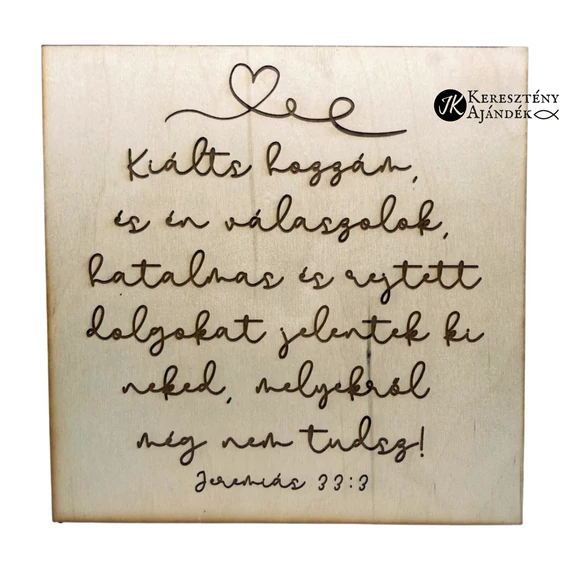 JK KERESZTÉNY
AJÁNDÉK
Kiálts hozzám,
és én válaszolok,
hatalmas és rejtett
dolgokat jelentek ki
neked, melyekről
még nem tudsz!
Jeremiás 33:3